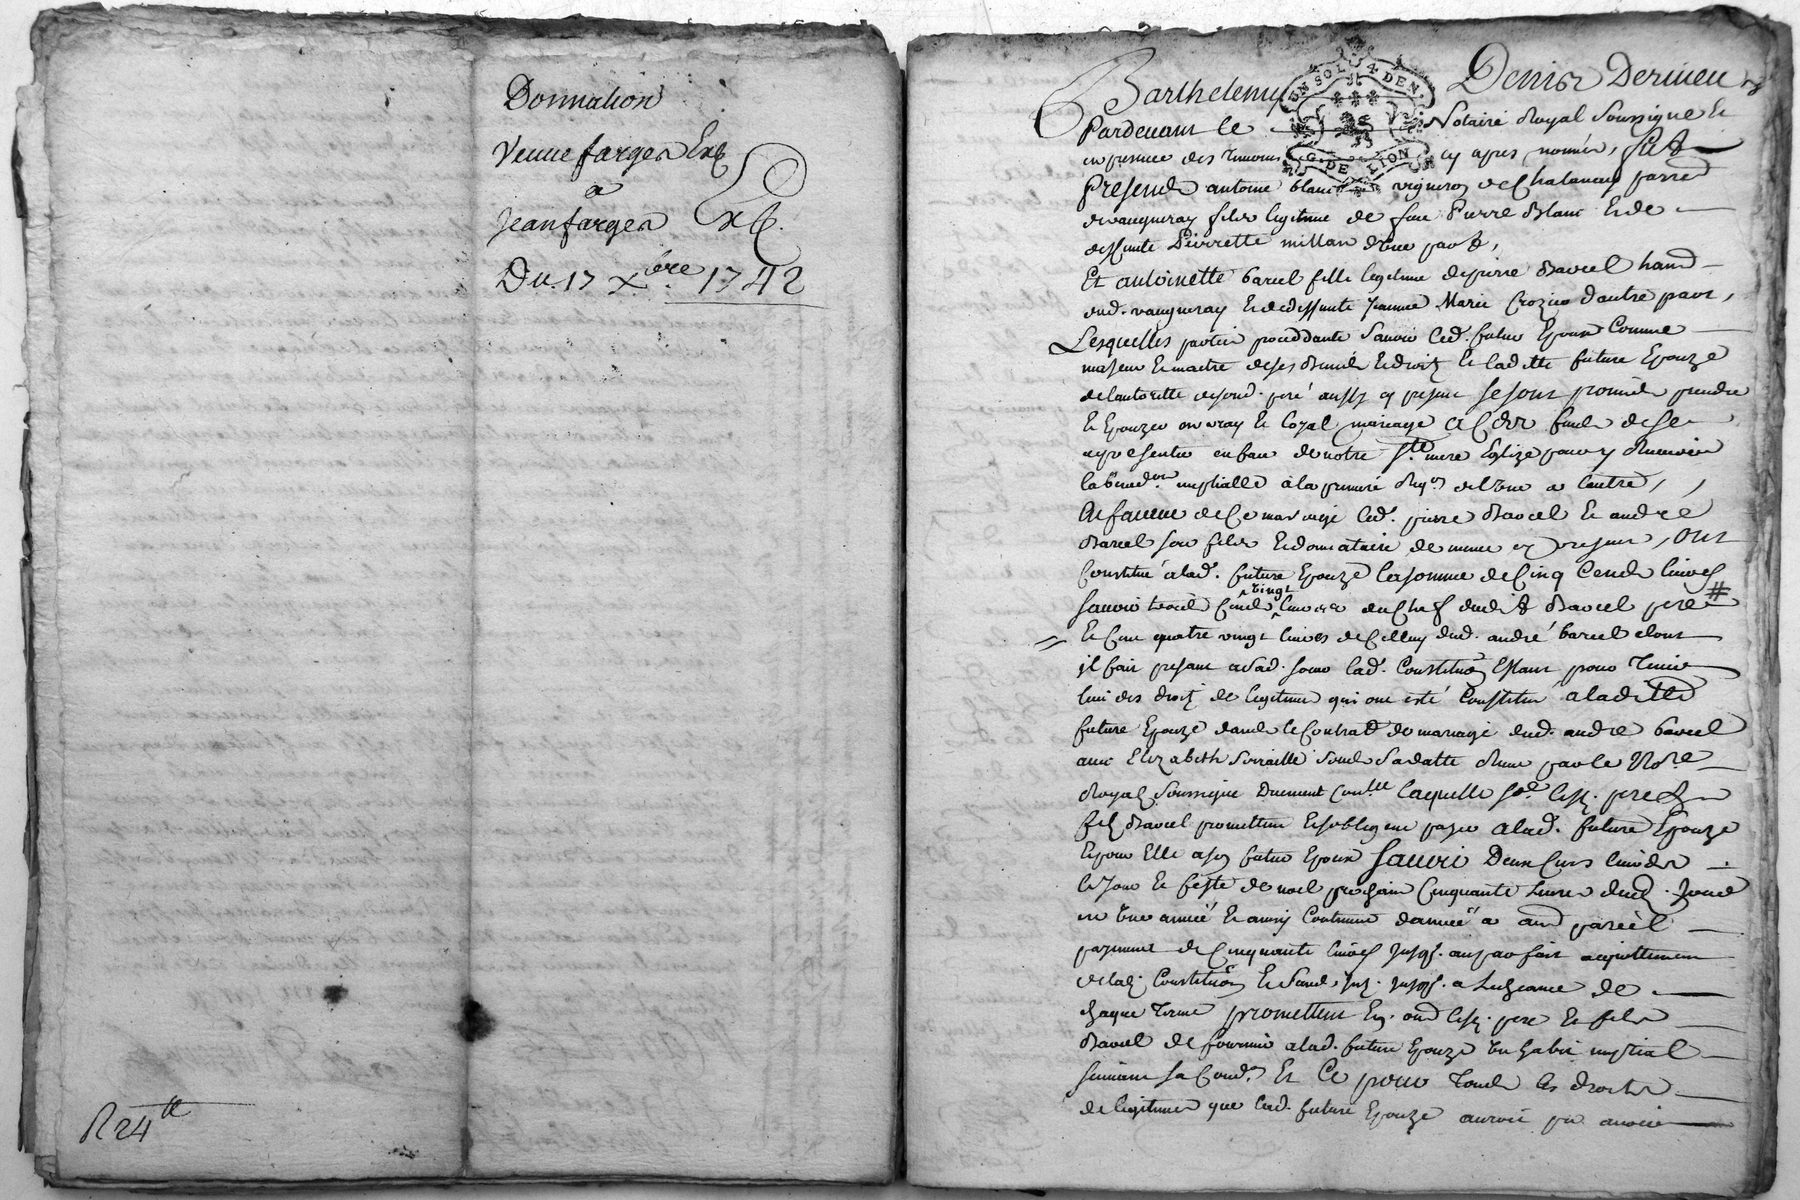 Donnation
Veuve farges Exp
a
Jean farges Exp.
Du. 17 Xbre. 1742
R 24 tt
UN SOL 4 DEN.
G. DE LION
Barthelemy Denis Derieu
Pardevant le Notaire Royal Soussigné Et
en presence des temoins cy apres nommés, fut
Present antoine blanc vigneron de Chalancay parr.
de vaugneray fils legitime de feu Pierre Blanc Et de
deffunte Pierrette millan d'une part,
Et antoinette barcel fille legitime de pierre Barcel hand
dud. vaugneray Et de deffunte Jeanne Marie Crozier d'autre part,
Lesquelles parties procedantes Savoir Led. futur Epoux Comme
majeur Et maitre de ses Biens Et droits Et laditte future Epouze
de l'autoritté de sond. pere aussy cy present se sont promis prendre
Et Epouzer en vray Et loyal mariage a Ces fins de se
representer en face de notre Ste. mere Eglize pour y Recevoir
la bened.on nuptialle à la premiere Req.on de l'une a l'autre,
En faveur de Ce mariage Led. pierre Barcel Et andré
Barcel son fils Et donnataire de meme cy present, ont
Constitué a lad. future Epouze la somme de Cinq Cends livres
Savoir trois Cends vingt livres du Chef dudit Barcel pere #
Et Cent quatre vingt livres de Celluy dud. andré barcel dont
il fait present a lad. lad. Constitution Estant pour Tenir
lieu des droits de legitime qui ont esté Constitué a laditte
future Epouze dans le Contract de mariage dud. andre barcel
avec Elizabeth sous sa datte Receu par le No.re
Royal Soussigné Duement Con.llé laquelle So.e lesd. pere Et
fils Barcel promettent Et s'obligent payer a lad. future Epouze
Et pour Elle a son futur Epoux Savoir
le Jour Et feste de noel prochain Cinquante livres dud. Jour
en Une année Et ainsy Continuer d'année a autre pareil
payement de Cinquante livres Jusq. au parfait acquittement
de lad. Constitution Et Sans Int. Jusq. a Lecheance de
chaque Terme promettent En outre lesd. pere Et fils
Barcel de fournir a lad. future Epouze Un habit nuptial
suivant sa Cond.on Et Ce pour Tous les droits
de legitimes que lad. future Epouze auroit pu avoir